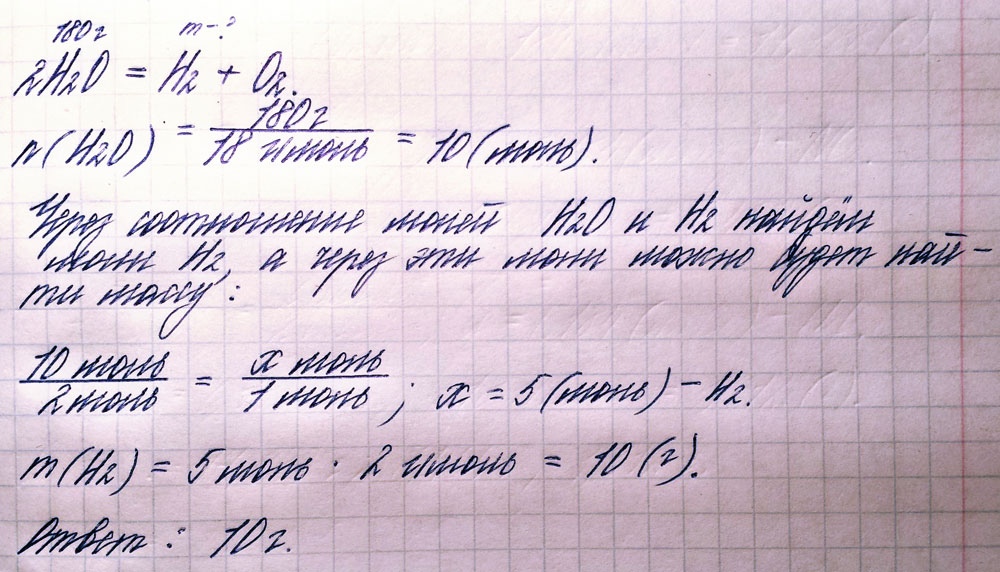 180 г m-?
2H2O = H2 + O2.
n(H2O) = 180г / 18 г/моль = 10(моль).
Через соотношение молей H2O и H2 найдём
моли H2, а через эти моли можно будет най-
ти массу:
10 моль / 2 моль = x моль / 1 моль ; x = 5(моль) - H2.
m(H2) = 5 моль · 2 г/моль = 10 (г).
Ответ: 10 г.